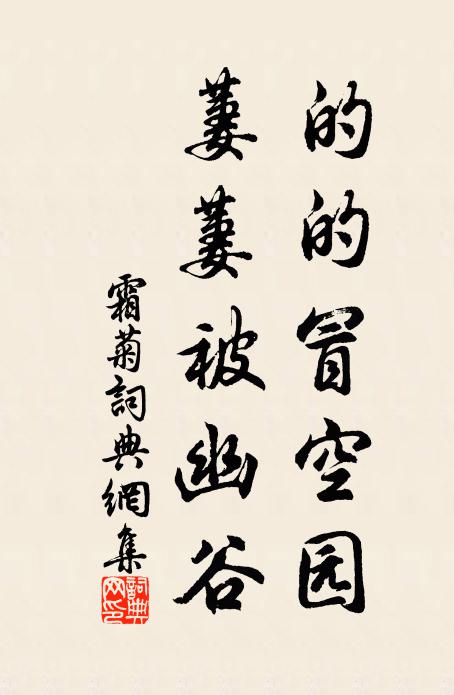 的的冒空园
萋萋被幽谷
霜菊詞典網集
詞典
网印